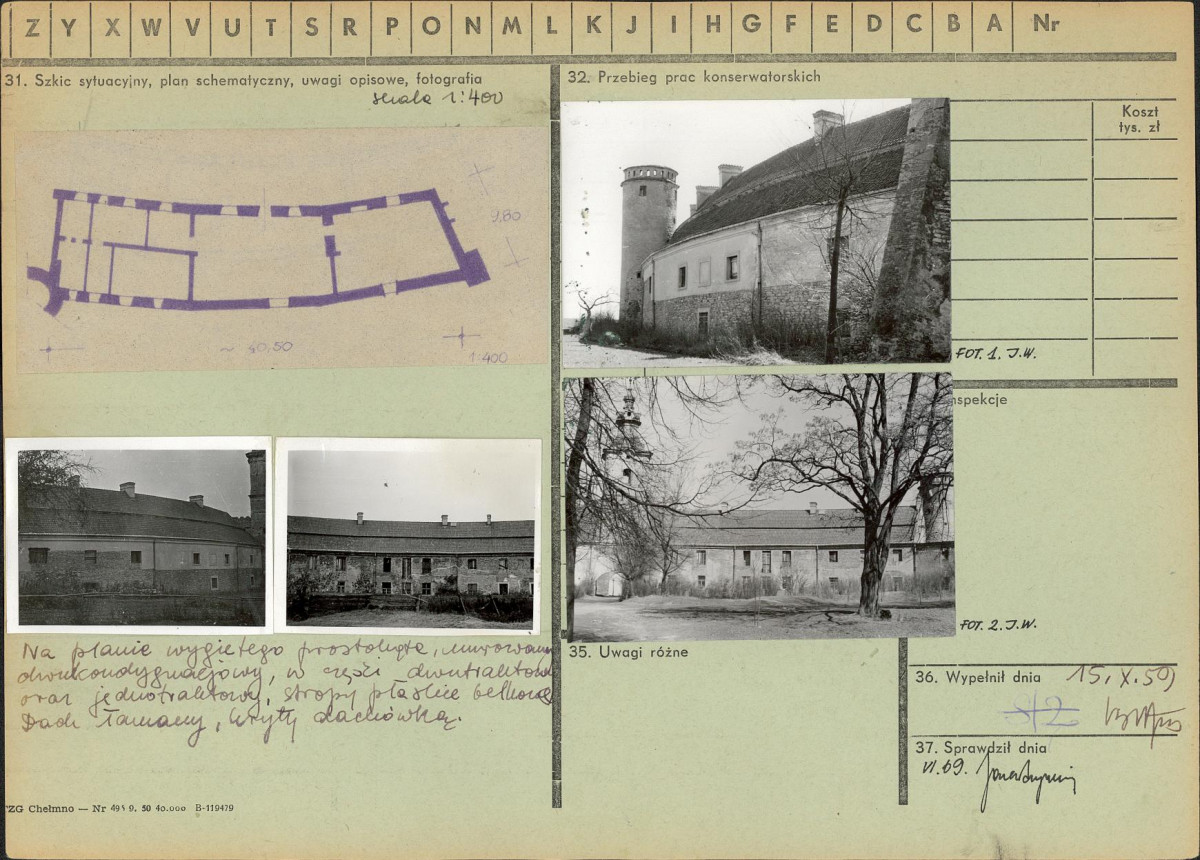 Z Y X W V U T S R P O N M L K J I H G F E D C B A Nr
31. Szkic sytuacyjny, plan schematyczny, uwagi opisowe, fotografia
skala 1:400
9,80
~ 40,50
1:400
Na planie wygiętego prostokąta, murowany
dwukondygnacjowy, w części dwutraktowy
oraz jednotraktowy, stropy płaskie belkowe
Dach łamany, kryty dachówką.
TZG Chełmno — Nr 9. 50 40.000 B-119479
32. Przebieg prac konserwatorskich
Koszt
tys. zł
FOT. 1. J.W.
nspekcje
FOT. 2. J.W.
35. Uwagi różne
36. Wypełnił dnia 15. X. 59
37. Sprawdził dnia
VI. 69.